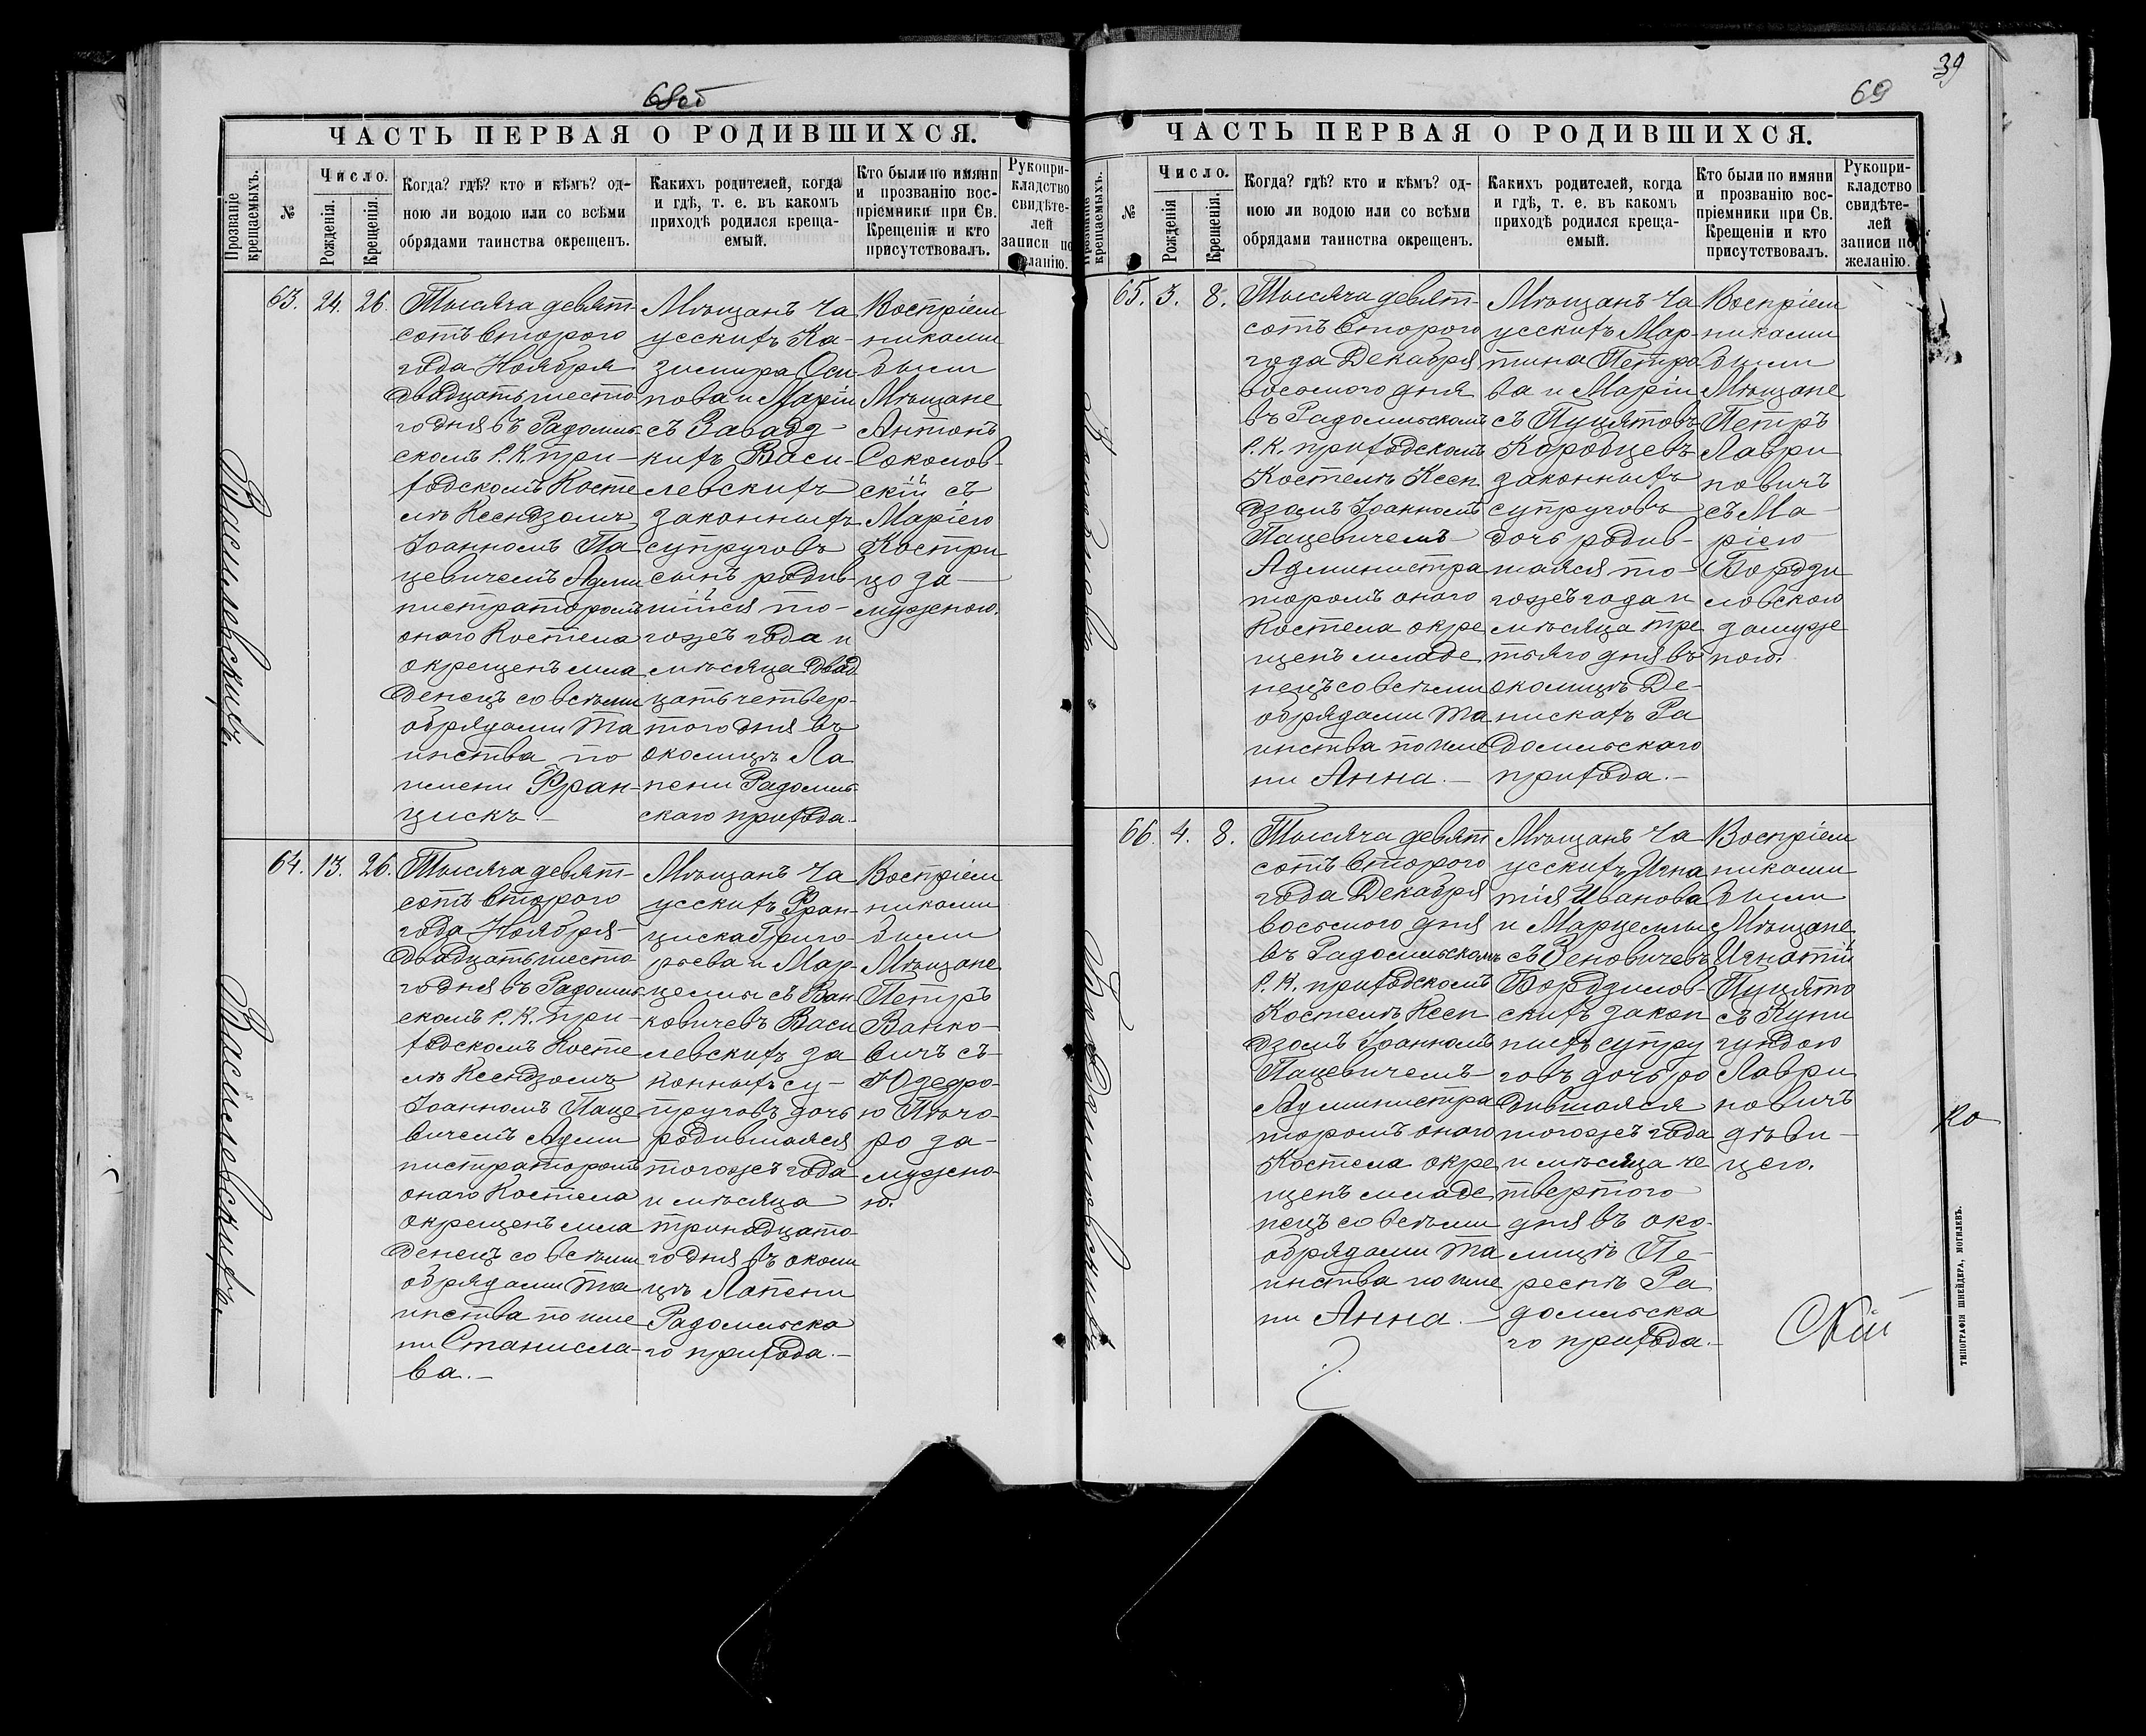 68об
ЧАСТЬ ПЕРВАЯ О РОДИВШИХСЯ.
Прозваніе крещаемыхъ.
№
Число.
Рожденія.
Крещенія.
Когда? гдѣ? кто и кѣмъ? од-
ною ли водою или со всѣми
обрядами таинства окрещенъ.
Какихъ родителей, когда
и гдѣ, т. е. въ какомъ
приходѣ родился креща-
емый.
Кто были по имяни
и прозванію вос-
пріемники при Св.
Крещеніи и кто
присутствовалъ.
Рукопри-
кладство
свидѣте-
лей
записи по
желанію.
Василевскихъ.
63. 24. 26.
Тысяча девят-
сотъ второго
года Ноября
двадцать шесто
го дня въ Радомль-
скомъ Р. К. при-
ходскомъ Косте
лѣ Ксендзомъ
Іоанномъ Па
цевичемъ Адми
нистраторомъ
онаго Костела
окрещенъ мла
денецъ со всѣми
обрядами Та
инства по
имени Фран-
цискъ.-
Мѣщанъ Ча
усскихъ Ка-
зимира Оси
пова и Маріи
съ Завад-
кихъ Васи-
левскихъ
законныхъ
супруговъ
сынъ родив-
шійся то-
гожъ года и
мѣсяца двад
цать четвер-
того дня въ
околицѣ Ла
пени Радомль
скаго прихода.
Воспріем
никами
были
Мѣщане
Антонъ
Соколов-
скій съ
Маріею
Костри
цо за-
мужною.
Василевскихъ.
64. 13. 26.
Тысяча девят-
сотъ второго
года Ноября-
двадцать шесто
го дня въ Радомль-
скомъ Р. К. при-
ходскомъ Косте
лѣ Ксендзомъ
Іоанномъ Паце
вичемъ Адми
нистраторомъ
онаго Костела
окрещенъ мла
денецъ со всѣми
обрядами Та
инства по име
ни Станисла-
ва.-
Мѣщанъ Ча
усскихъ Фран-
циска Григо-
рьева и Мар-
целлы съ Ван
ковичевъ Васи
левскихъ за
конныхъ су-
пруговъ дочь
родившаяся
тогожъ года
и мѣсяца
тринадцато
го дня въ околи
цѣ Лапени
Радомльска
го прихода.-
Воспріем
никами
были
Мѣщане
Петръ
Ванко-
вичъ съ-
Юзефо-
ю Пѣчо-
ро за-
мужно-
ю.
39
69
ЧАСТЬ ПЕРВАЯ О РОДИВШИХСЯ.
Прозваніе крещаемыхъ.
№
Число.
Рожденія
Крещенія.
Когда? гдѣ? кто и кѣмъ? од-
ною ли водою или со всѣми
обрядами таинства окрещенъ.
Какихъ родителей, когда
и гдѣ, т. е. въ какомъ
приходѣ родился креща-
емый.
Кто были по имяни
и прозванію вос-
пріемники при Св.
Крещеніи и кто
присутствовалъ.
Рукопри-
кладство
свидѣте-
лей
записи по
желанію.
65. 3. 8.
Тысяча девят-
сотъ второго
года Декабря
восьмого дня
въ Радомльскомъ
Р. К. приходскомъ
Костелѣ Ксен
дзомъ Іоанномъ
Пацевичемъ
Администра
торомъ онаго
Костела окре
щенъ младе
нецъ со всѣми
обрядами Та
инства по име
ни Анна.-
Мѣщанъ Ча
усскихъ Мар-
тина Петро
ва и Маріи
съ Пуцятовъ
Коробцевъ
законныхъ
супруговъ
дочь родив-
шаяся то-
гожъ года и
мѣсяца тре
тьяго дня въ
околицѣ Де-
нискахъ Ра
домльскаго
прихода.-
Воспріем
никами
были
Мѣщане
Петръ
Лаври
новичъ
съ Ма-
ріею
Бордзи
ловскою
замуже
ною.
66. 4. 8.
Тысяча девят
сотъ второго
года Декабря
восьмого дня
въ Радомльскомъ
Р. К. приходскомъ
Костелѣ Ксен
дзомъ Іоанномъ
Пацевичемъ
Администра
торомъ онаго
Костела окре
щенъ младе
нецъ со всѣми
обрядами Та
инства по име
ни Анна.-
Мѣщанъ Ча
усскихъ Игна
тія Иванова
и Марцеллы
съ Зеновичевъ
Бордзилов-
скихъ закон
ныхъ супру
говъ дочь ро
дившаяся
тогожъ года
и мѣсяца че
твертого
дня въ око-
лицѣ Пе-
реснѣ Ра
домльска
го прихода.-
Воспріем
никами
были
Мѣщане
Игнатій
Пуцято
съ Куни
гундою
Лаври
новичъ
дѣви-
цею.
Ко
ТИПОГРАФІЯ ШНЕЙДЕРА, МОГИЛЕВЪ.